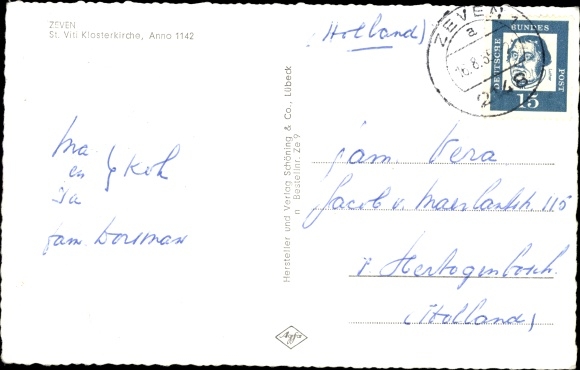 ZEVEN
St. Viti Klosterkirche, Anno 1142
(Holland)
ZEVEN
a
BUNDES
DEUTSCHE
POST
15
Hersteller und Verlag Schöning & Co., Lübeck
Bestellnr. Ze 9
en
Ia
fam. Dorsman
fam. Vera
Jacob v. Maerlantstr. 115
's Hertogenbosch.
(Holland)
Agfa